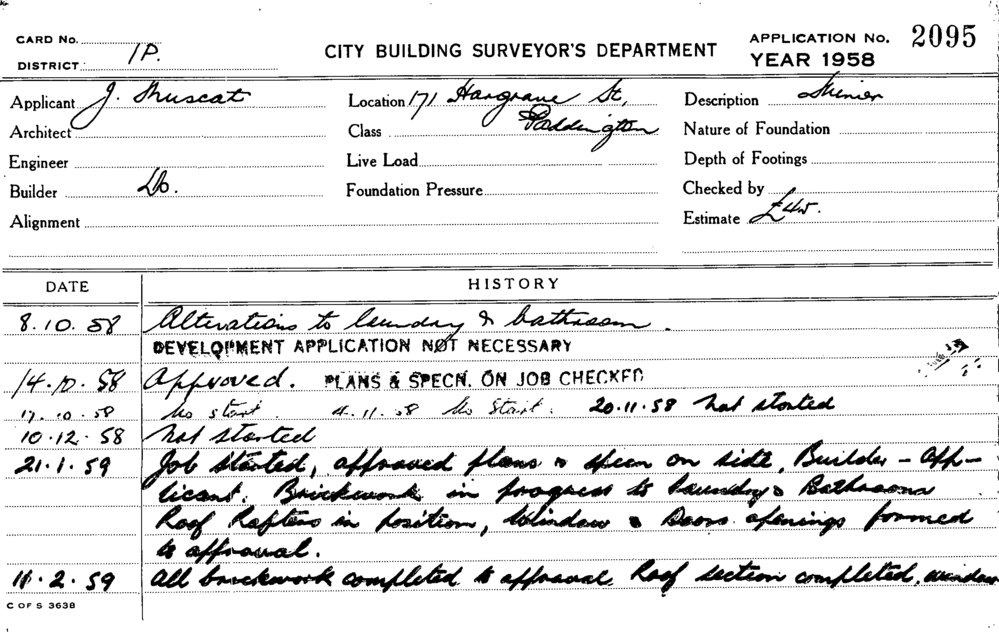 CARD No.
DISTRICT 1P.
CITY BUILDING SURVEYOR'S DEPARTMENT
APPLICATION No. 2095
YEAR 1958
Applicant J. Muscat
Location 171 Hargrave St,
Description Minor
Architect
Class Paddington
Nature of Foundation
Engineer
Live Load
Depth of Footings
Builder Do.
Foundation Pressure
Checked by
Alignment
Estimate £45.
DATE HISTORY
8.10.58 Alterations to laundry & bathroom.
DEVELOPMENT APPLICATION NOT NECESSARY
14.10.58 Approved. PLANS & SPECN. ON JOB CHECKED
17.10.58 No start. 4.11.58 No Start. 20.11.58 Not started
10.12.58 Not started
21.1.59 Job started, approved plans & specn on site, Builder - App-
licant. Brickwork in progress to Laundry & Bathrooms
Roof Rafters in position, Window & Doors openings formed
to approval.
11.2.59 All brickwork completed to approval, Roof section completed, window
C OF S 3638